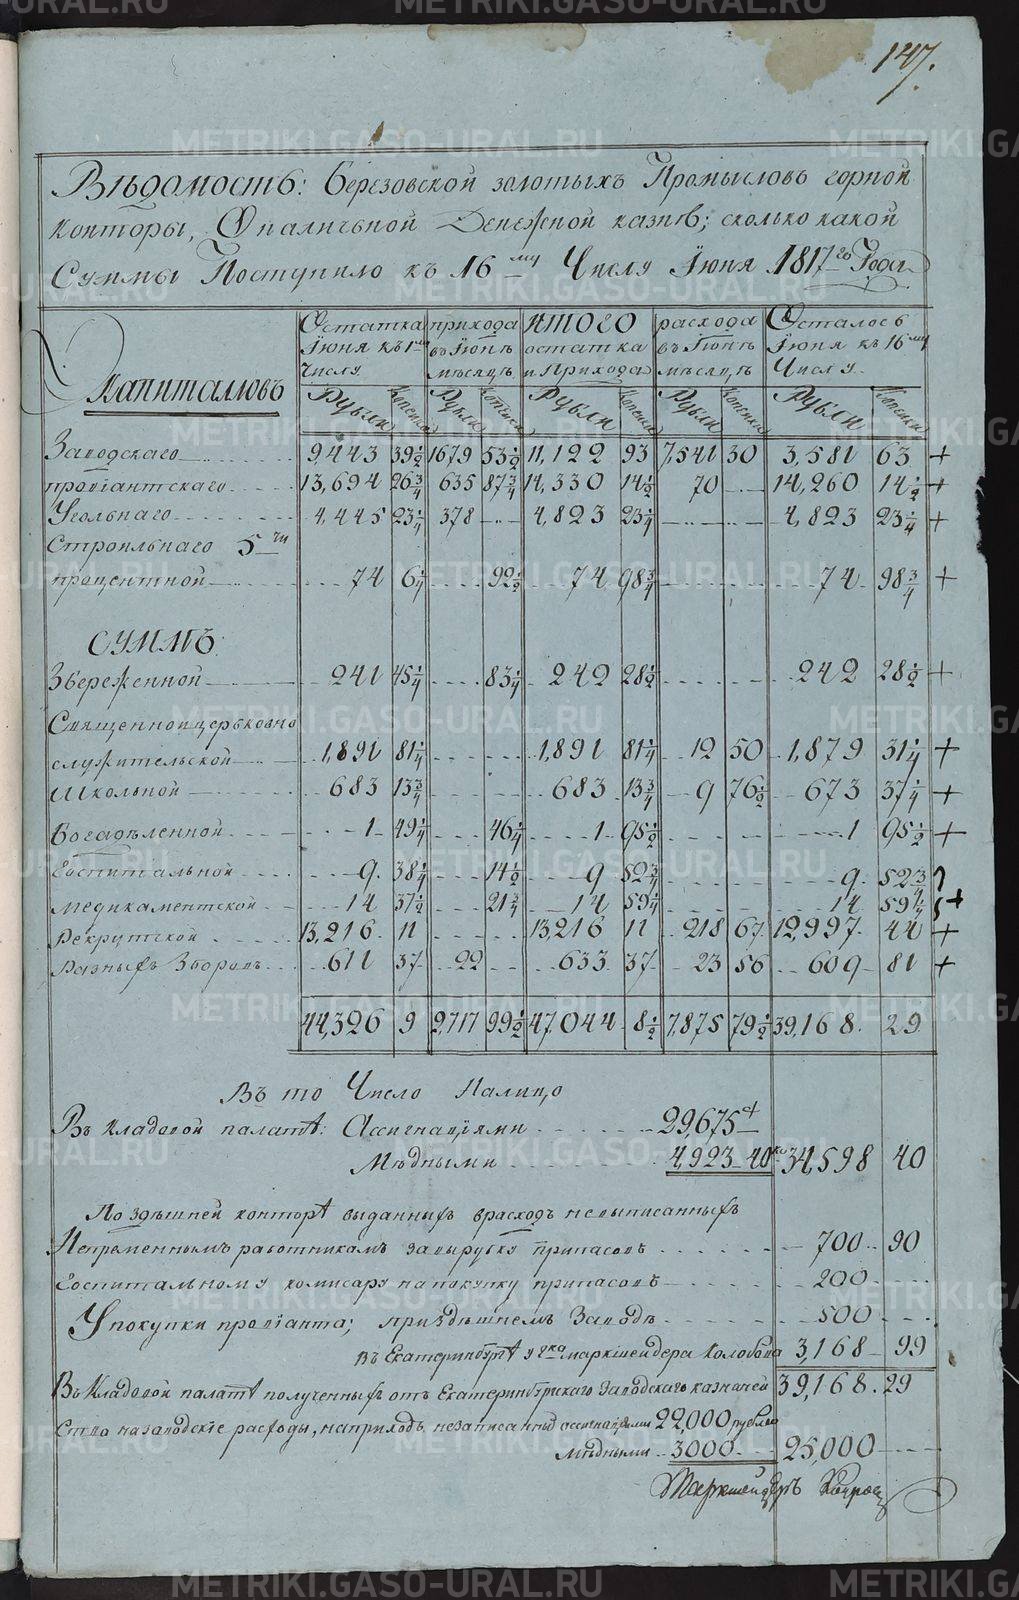 147.
Вѣдомость: Березовской золотыхъ Промысловъ горной
конторы, О наличьной Денежной казнѣ; сколько какой
Суммы Поступило къ 16му Числу Июня 1817го Года
Капиталовъ
Остатка Июня къ 1му Числу | прихода въ Июнѣ мѣсяцѣ | ИТОГО остатка и Прихода | расхода въ Июнѣ мѣсяцѣ | Осталось Июня къ 16му Числу
Рубли | Копейки | Рубли | Копейки | Рубли | Копейки | Рубли | Копейки | Рубли | Копейки
Заводскаго 9,443 39½ 1679 53½ 11,122 93 7,541 30 3,581 63 +
провіантскаго 13,694 26¾ 635 87¾ 14,330 14½ 70 14,260 14½ +
Угольнаго 4,445 23¼ 378 4,823 23¼ 4,823 23¼ +
Строильнаго 5ти
процентной 74 6¼ 92½ 74 98¾ 74 98¾ +
СУММЪ
Збереженной 241 45¼ 83¼ 242 28½ 242 28½ +
Священноицерьковно
служительской 1,891 81¼ 1,891 81¼ 12 50 1,879 31¼ +
Школьной 683 13¾ 683 13¾ 9 76½ 673 37¼ +
Богадѣленной 1 49¼ 46¼ 1 95½ 1 95½ +
Госпитальной 9 38¼ 14½ 9 52¾ 9 52¾
медикаментской 14 37½ 21¾ 14 59¼ 14 59¼ +
Рекрутской 13,216 11 13,216 11 218 67 12,997 44 +
Разныхъ Зборовъ 611 37 22 633 37 23 56 609 81 +
44,326 9 2,717 99½ 47,044 8½ 7,875 79½ 39,168 29
Въ то Число Налицо
Въ кладовой палатѣ: Ассигнаціями 29,675
Мѣдными 4923 40 34,598 40
По здѣшней конторѣ выданныхъ врасходъ невыписанныхъ
Непременнымъ работникамъ завырубку припасовъ 700 90
Госпитальному комисару напокупку припасовъ 200
Упокупки провіанта; приздѣшнемъ Заводѣ 500
Въ Екатеринбургѣ у гна маркшейдера Колобова 3,168 99
39,168 29
Въ Кладовой палатѣ полученныхъ отъ Екатеринбурскаго Заводскаго казначей
Ства назаводскіе расходы, наприходъ незаписанныхъ ассигнаціями 22,000 рублей
мѣдными 3000 25,000
Маркшейдеръ